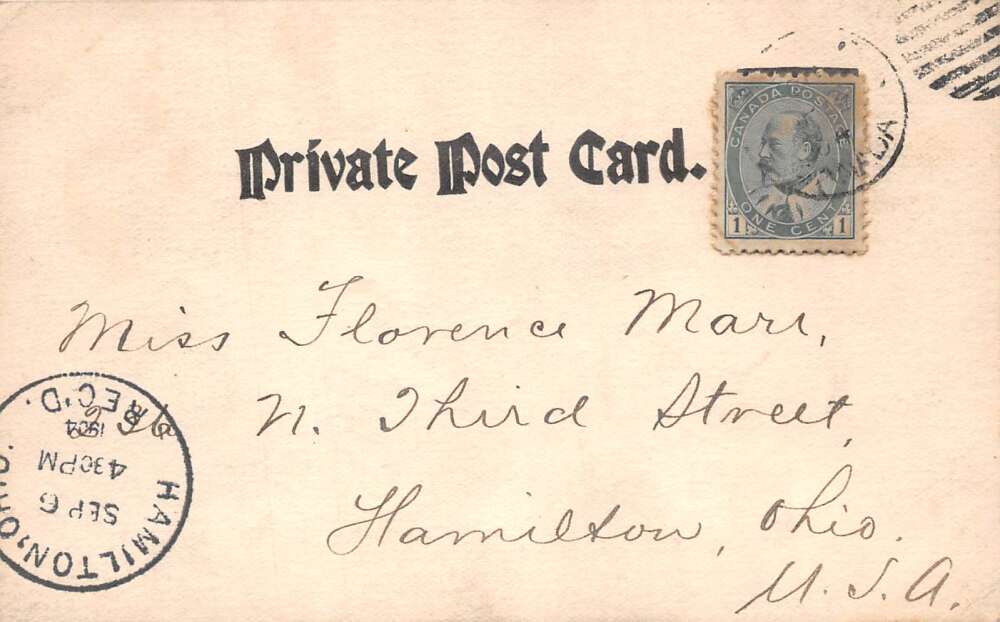 CANADA
CANADA POSTAGE
ONE CENT
1 1
Private Post Card.
Miss Florence Marr,
N. Third Street,
Hamilton, Ohio.
U.S.A.
HAMILTON, OHIO.
SEP 6
430PM
1904
REC'D.